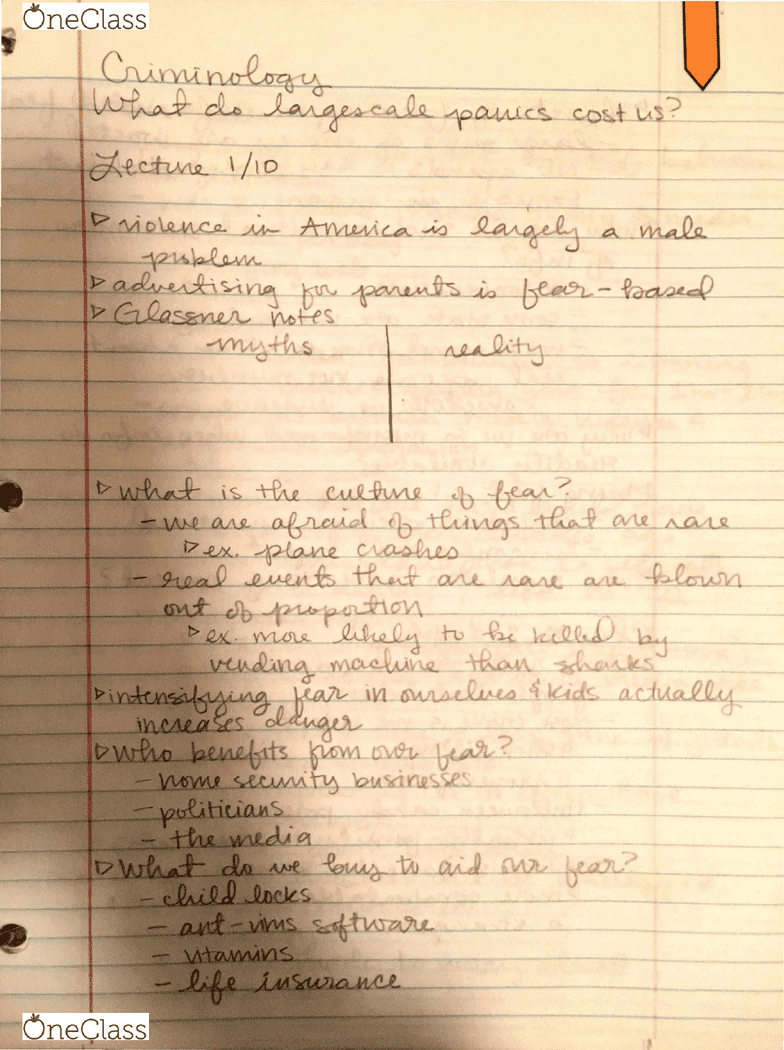 OneClass
Criminology
What do largescale panics cost us?
Lecture 1/10
▷ violence in America is largely a male
problem
▷ advertising for parents is fear-based
▷ Glassner notes
myths reality
▷ what is the culture of fear?
- we are afraid of things that are rare
▷ ex. plane crashes
- real events that are rare are blown
out of proportion
▷ ex. more likely to be killed by
vending machine than sharks
▷ intensifying fear in ourselves & kids actually
increases danger
▷ Who benefits from our fear?
- home security businesses
- politicians
- the media
▷ What do we buy to aid our fear?
- child locks
- ant-virus software
- vitamins
- life insurance
OneClass